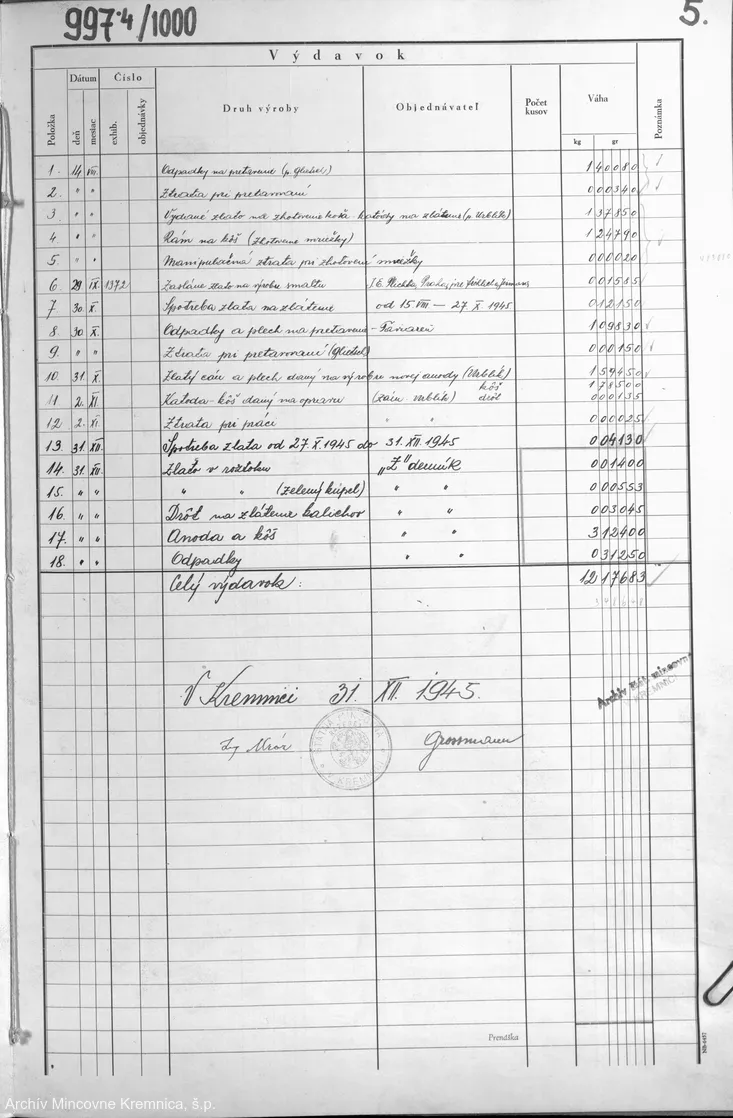 997·4/1000
5.
Výdavok
Položka
Dátum
deň
mesiac
Číslo
exhib.
objednávky
Druh výroby
Objednávateľ
Počet kusov
Váha
kg
gr
Poznámka
1. 14 VIII. Odpadky na pretavenie 1 4 0 0 8 0
2. " " Ztrata pri pretavovaní 0 0 0 3 4 0
3 " " Vydané zlato na zhotovenie koša - katódy na zlátenie (p. Urblík) 1 3 7 8 5 0
4. " " Rám na kôš (zhotovenie mriežky) 1 2 4 7 9 0
5 " " Manipulačná ztrata pri zhotovení mriežky 0 0 0 0 2 0
6 29 IX. 1372 Zaslané zlato na výrobu smaltu 0 0 1 5 8 5
7. 30. X. Spotreba zlata na zlátenie od 15 VIII — 27 X 1945 0 1 2 1 5 0
8. 30 X. Odpadky a plech na pretavenie 1 0 9 8 3 0
9. " " Ztrata pri pretavovaní 0 0 0 1 5 0
10. 31. X. Zlatý cán a plech daný na výrobu novej anody (Urblík) 1 5 9 4 5 0
kôš 1 7 8 5 0 0
11 2. XI Katoda - kôš daný na opravu drôt 0 0 0 1 3 5
12 2. XI. Ztrata pri práci " " 0 0 0 0 2 5
13. 31. XII. Spotreba zlata od 27. X. 1945 do 31. XII. 1945 0 0 4 1 3 0
14. 31. XII. Zlato v roztoku „Z" denník 0 0 1 4 0 0
15. " " " " (zelený kúpel) " " 0 0 0 5 5 3
16 " " Drôt na zlátenie kalichov " " 0 0 3 0 4 5
17. " " Anoda a kôš " " 3 1 2 4 0 0
18. " " Odpadky " " 0 3 1 2 5 0
Celý výdavok: 12 1 7 6 8 3
V Kremnici 31. XII. 1945.
Grossmann
KREMNICI
Prenáška
Archív Mincovne Kremnica, š.p.